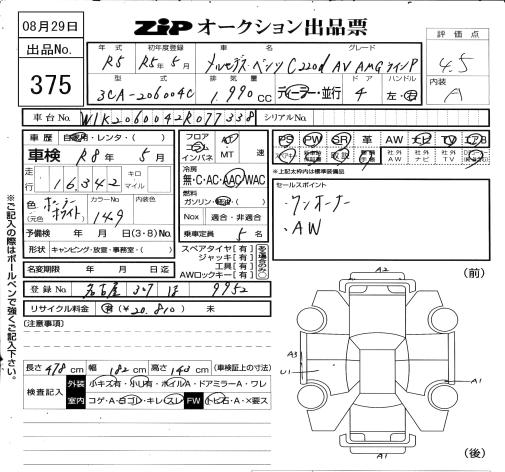 08月29日
ZIP オークション出品票
出品No.
375
評価点
4.5
内装
A
年式 初年度登録 車名 グレード
R5 R5年5月 メルセデス・ベンツ C220d AV AMGラインP
型式 排気量 ドア ハンドル
3CA-206004C 1,990cc ディーラー・並行 4 左・右
車台No. W1K2060042R077338 シリアルNo.
車歴 自家用・レンタ・( )
車検 R8年5月
走行 16,342 キロ マイル
色 ホーラーホワイト (元色) カラーNo. 149 内装色
予備検 年 月 日(3・8)No.
形状 キャンピング・放置・事務室・( )
名変期限 年 月 日迄
フロア コラム インパネ AT MT 速
冷房 無・C・AC・AAC・WAC
燃料 ガソリン・軽油・( )
Nox 適合・非適合
乗車定員 5名
スペアタイヤ[有]
ジャッキ[有]
工具[有]
AWロックキー[有]
ある場合のみ○
PS PW SR 革 AW ナビ TV エアB
社外AW 社外ナビ 社外TV
*上記太枠内は標準装備品
セールスポイント
・ワンオーナー
・AW
登録No. 名古屋 307 ほ 9952
リサイクル料金 有 (¥20,810) 未
(注意事項)
長さ478cm 幅182cm 高さ143cm (車検証上の寸法)
検査記入
外装 小キズ有・小U有・ホイルA・ドアミラーA・ワレ
室内 コゲ・A・ヨゴレ・キレ・スレ FW トビ石・A・X要ス
※ご記入の際はボールペンで強くご記入下さい。
(前)
A2
A3
U1
A1
A1
(後)